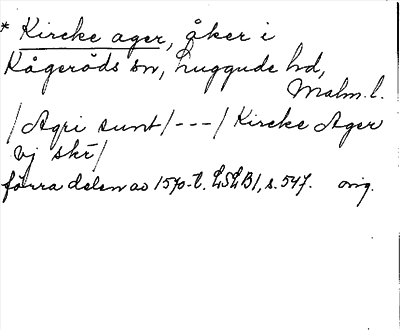 * Kircke ager, åker i
Kågeröds sn, Luggude hd,
Malm. l.
/Agri sunt/---/Kircke Ager
vj skr̄/
förra delen av 1570-t. LSLB1, s. 547. orig.